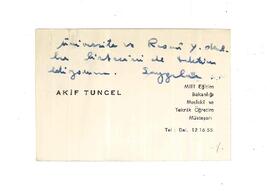 üniversite ve Resmî Y. okul
bir listesini de takdim
ediyorum. Saygılar ..
AKİF TUNCEL
Millî Eğitim
Bakanlığı
Meslekî ve
Teknik Öğretim
Müsteşarı
Tel : Dai. 12 16 55